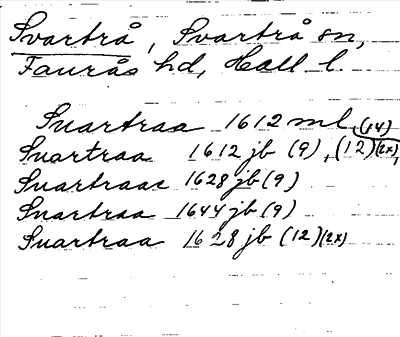 Svartrå, Svartrå sn,
Faurås hd, Hall l.
Suartraa 1612 ml (14)
Suartraa 1612 jb (9), (12)(2x),
Suartraae 1628 jb (9)
Suartraa 1644 jb (9)
Suartraa 1628 jb (12)(2x)